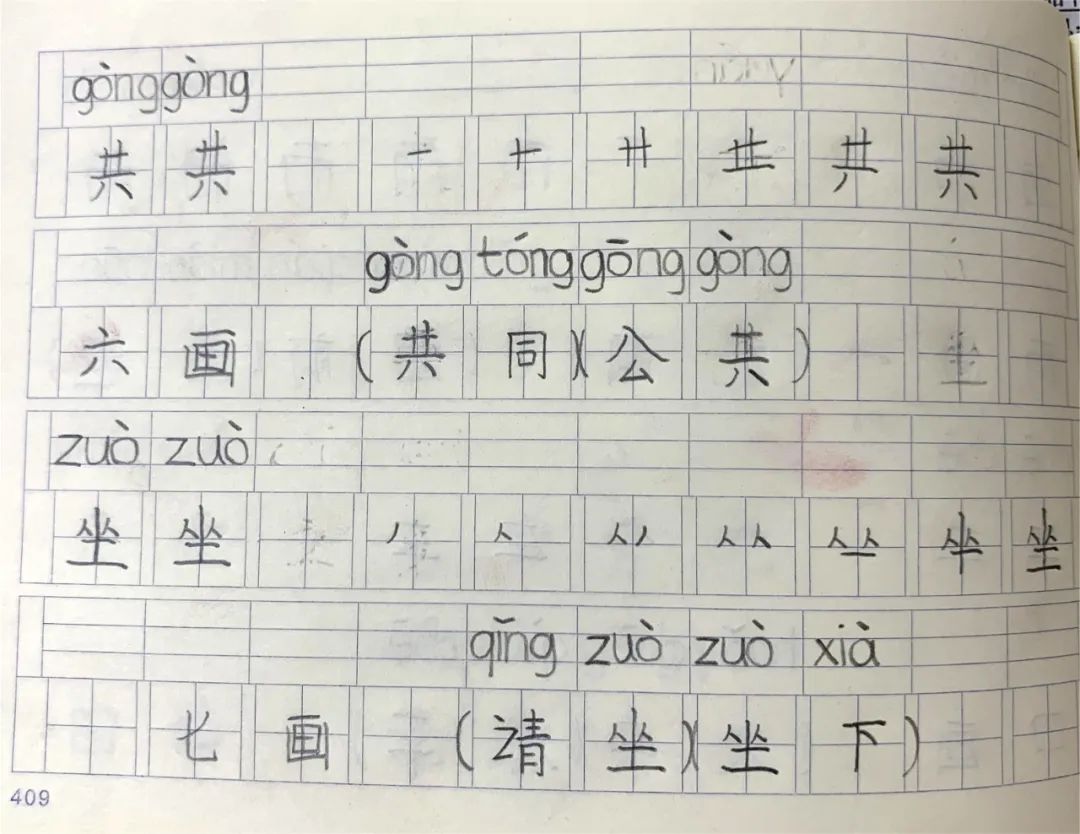 gònggòng
共 共 一 十 卄 龷 共
gòng tóng gōng gòng
六 画 (共 同)(公 共)
zuò zuò
坐 坐 丿 人 坐
qǐng zuò zuò xià
七 画 (请 坐)(坐 下)
409